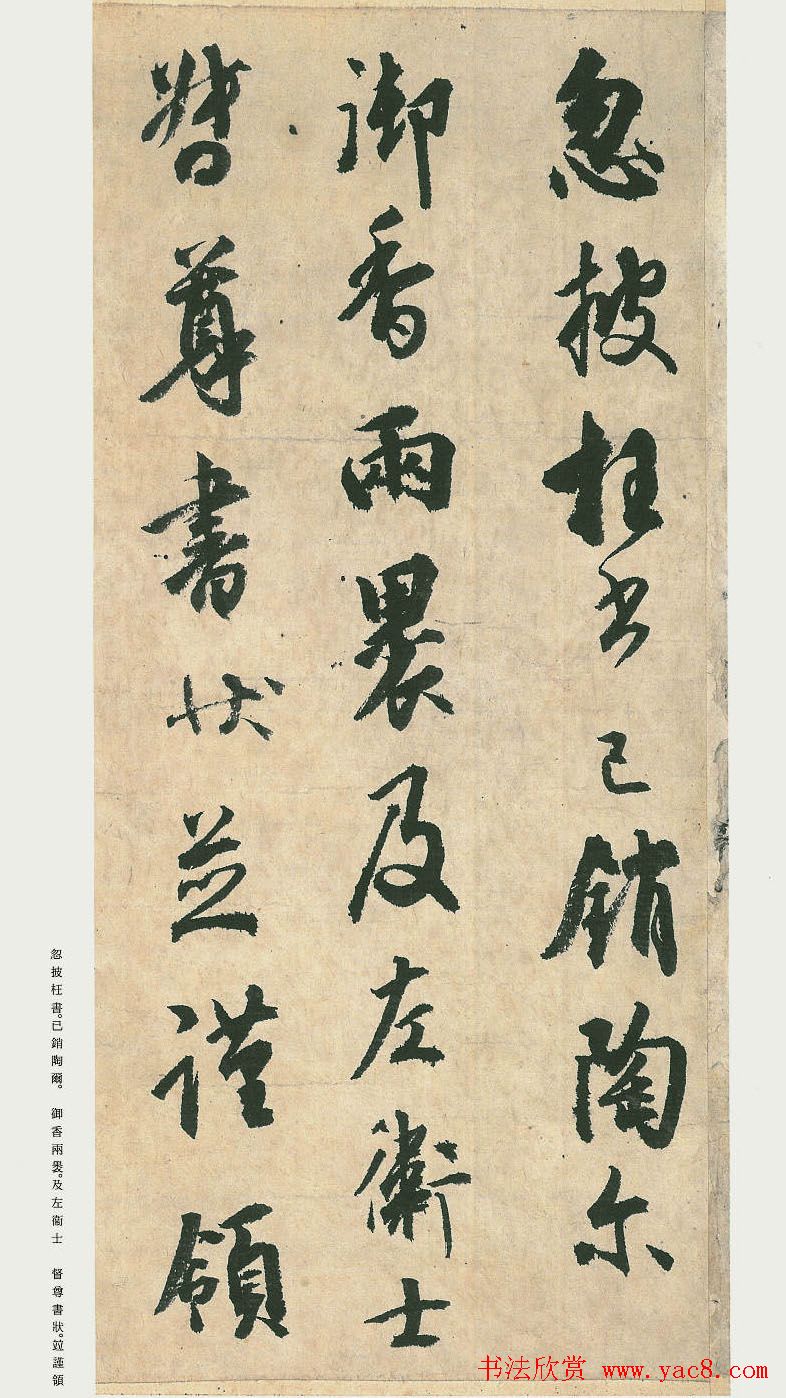 忽披枉書已銷陶尔
御香兩裛及左衛士
督尊書狀並謹領
忽披枉書。已銷陶爾。 御香兩裛。及左衞士 督尊書狀。竝謹領
书法欣赏 www.yac8.com